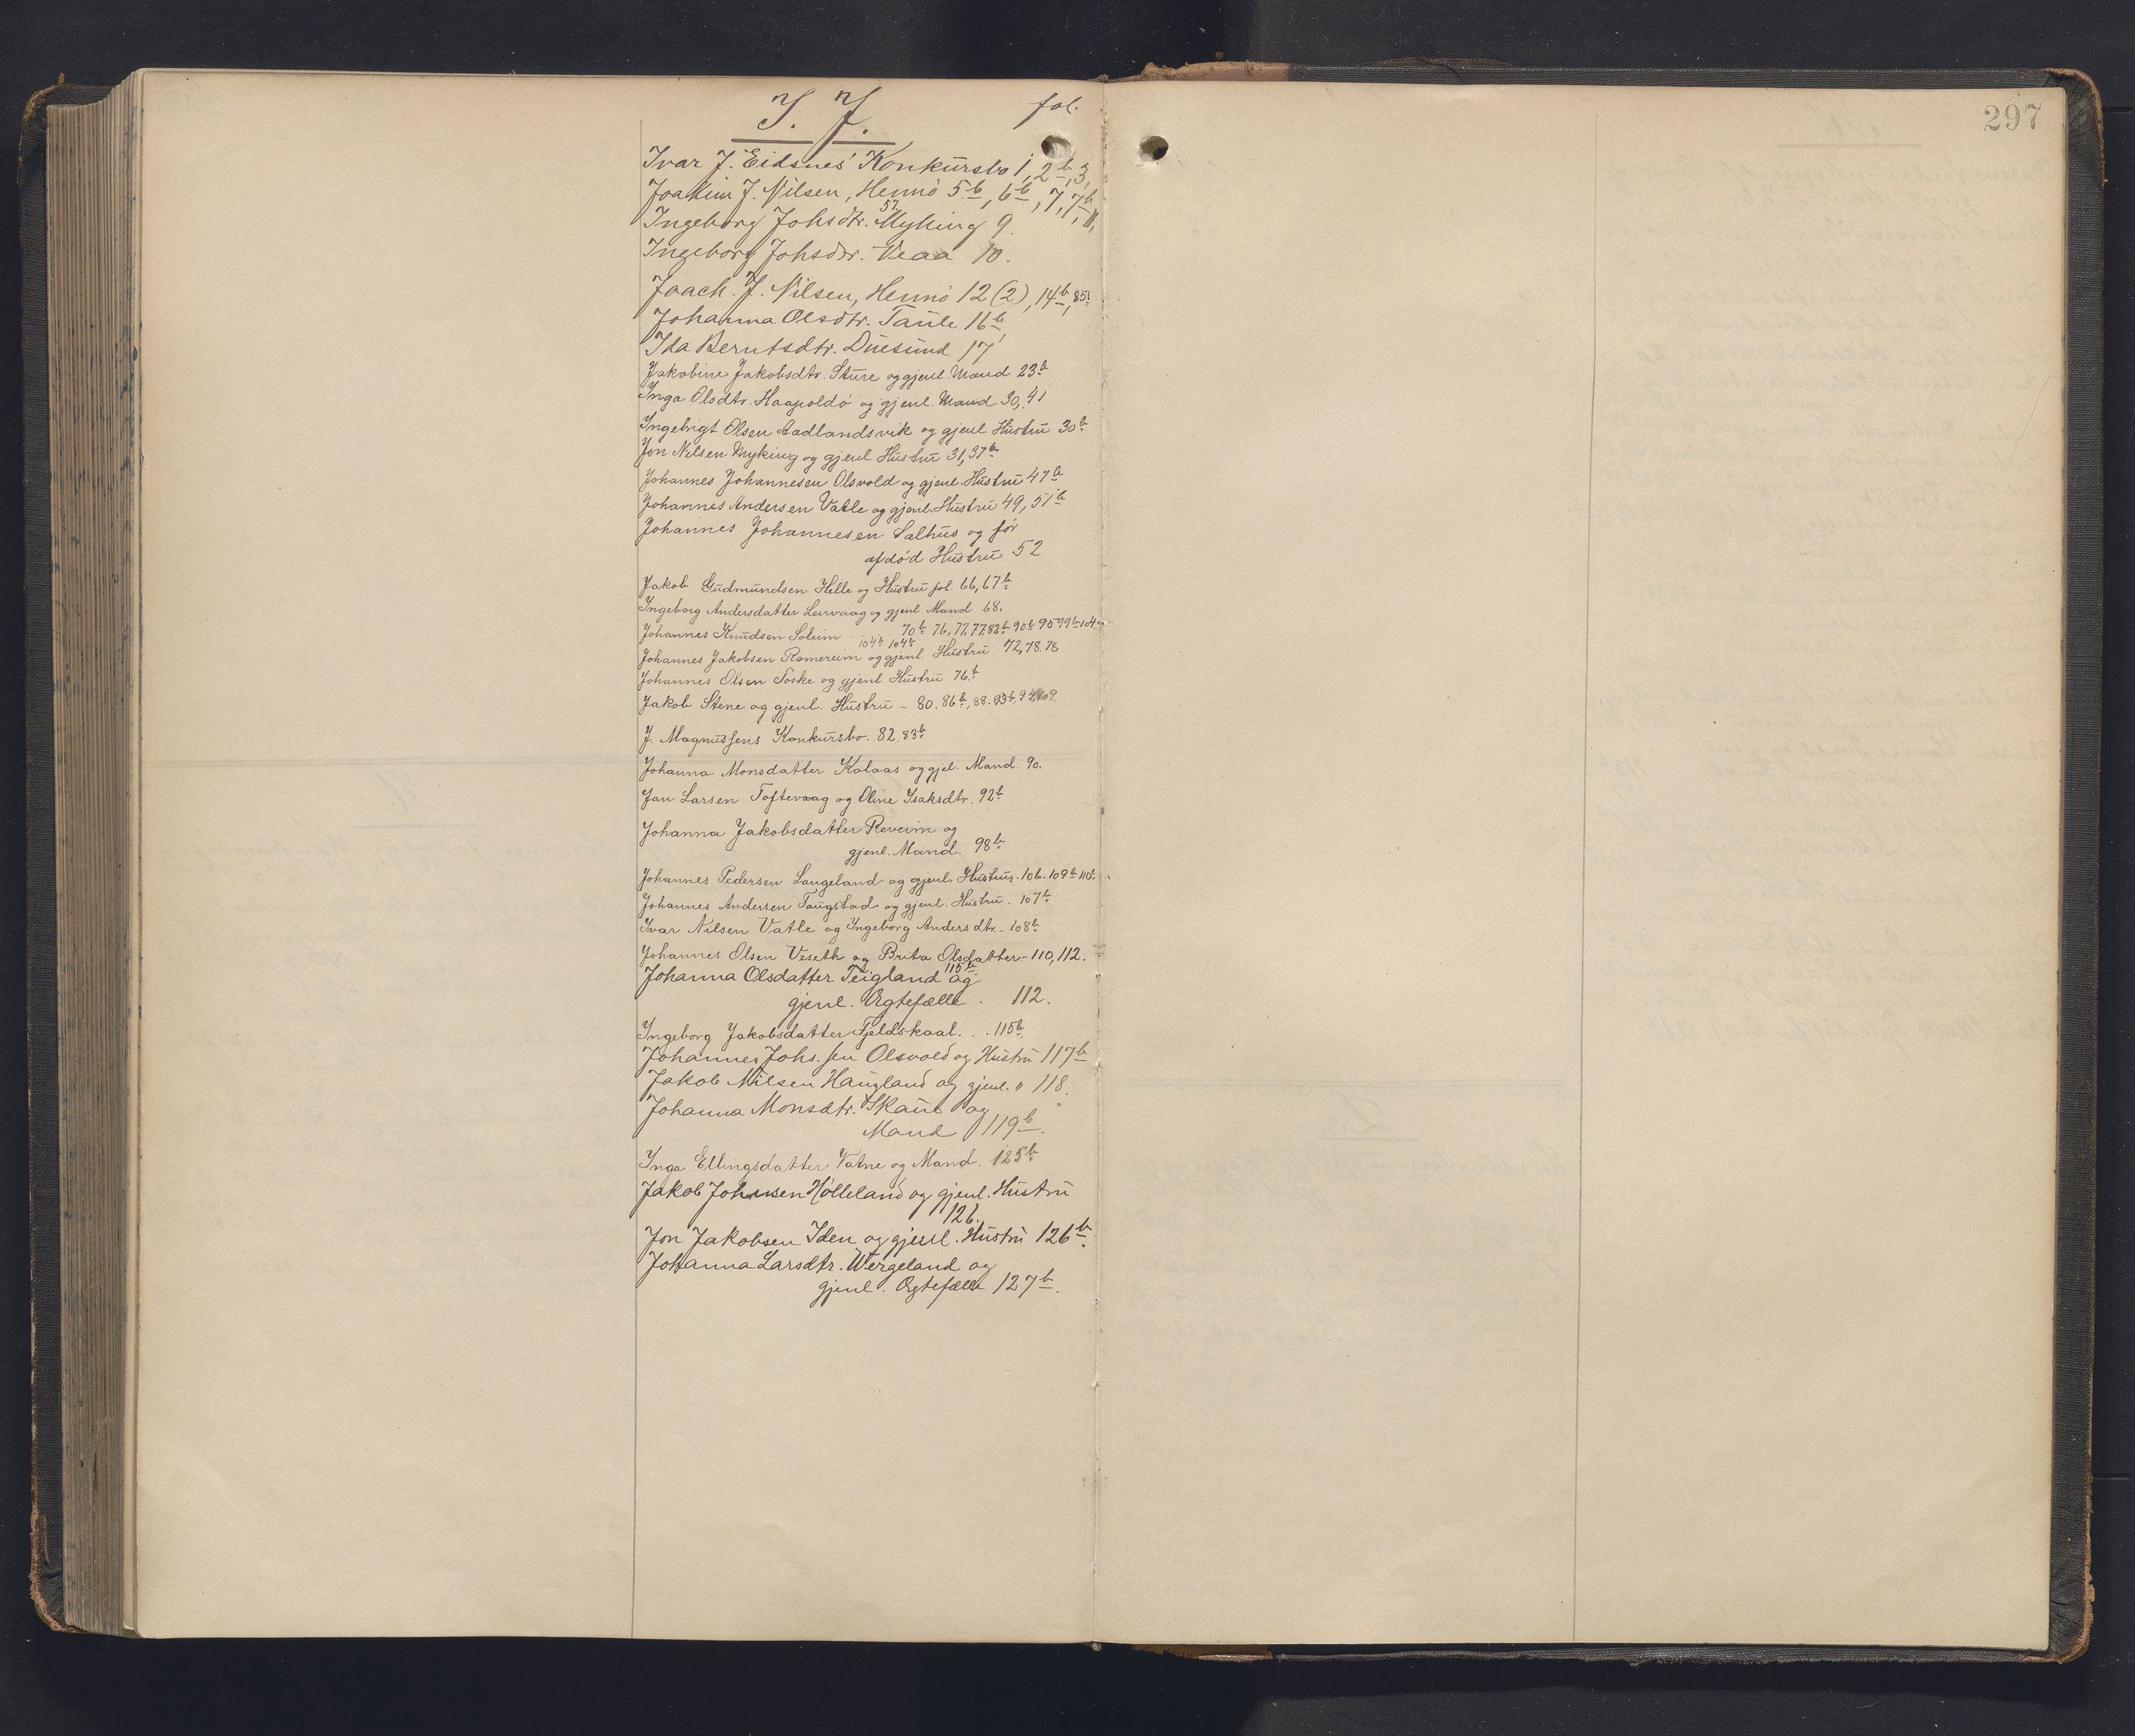 I. J. fol.
297
Ivar J. Eidsnes' Konkursbo 1, 2b, 3,
Joakim J. Nilsen, Hennø 5b, 6b, 7, 7b, 11,
57
Ingeborg Johsdtr. Myking 9.
Ingeborg Johsdtr. Veaa 10.
Joach. J. Nilsen, Hennø 12 (2), 14b, 85b
Johanna Olsdtr. Taule 16b,
Ida Berntsdtr. Duesund 17
Jakobine Jakobsdtr. Sture og gjenl. Mand 23b
Inga Olsdtr. Haapoldø og gjenl. Mand. 30, 41
Ingebrigt Olsen Aadlandsvik og gjenl Hustru 30b
Jon Nilsen Myking og gjenl. Hustru 31, 37b
Johannes Johannesen Olsvold og gjenl. Hustru 47b
Johannes Andersen Vatle og gjenl. Hustru 49, 51b
Johannes Johannesen Salhus og før
afdød Hustru 52
Jakob Gudmundsen Helle og Hustru fol. 66, 67b
Ingeborg Andersdatter Leirvaag og gjenl Mand 68.
Johannes Knudsen Soleim 70b 76, 77, 77, 82b 90b 95 99b 104
104b 104b
Johannes Jakobsen Romereim og gjenl. Hustru 72, 78. 78
Johannes Olsen Toske og gjenl. Hustru 76b
Jakob Stene og gjenl. Hustru – 80. 86b, 88. 93b, 94, 109
J. Magnussens Konkursbo. 82, 83b
Johanna Monsdatter Kalaas og gjel. Mand. 90.
Jan Larsen Toftevaag og Oline Isaksdtr. 92b
Johanna Jakobsdatter Reveim og
gjenl. Mand. 98b
Johannes Pedersen Langeland og gjenl. Hustru. 106. 109b 110b
Johannes Andersen Taugstad og gjenl. Hustru. 107b
Ivar Nilsen Vatle og Ingeborg Andersdtr. – 108b
Johannes Olsen Veseth og Brita Olsdatter – 110, 112.
115b
Johanna Olsdatter Teigland og
gjenl. Ægtefælle. 112.
Ingeborg Jakobsdatter Fjeldskaal. . . 115b
Johannes Johs.sen Olsvold og Hustru 117b
Jakob Nilsen Haugland og gjenl. " 118.
Johanna Monsdtr. Skaue og
Mand 119b.
Inga Ellingsdatter Vatne og Mand. 125b
Jakob Johnsen Hølleland og gjenl. Hustru
126.
Jon Jakobsen Iden og gjenl. Hustru 126b.
Johanna Larsdtr. Wergeland og
gjenl. Ægtefælle 127b.